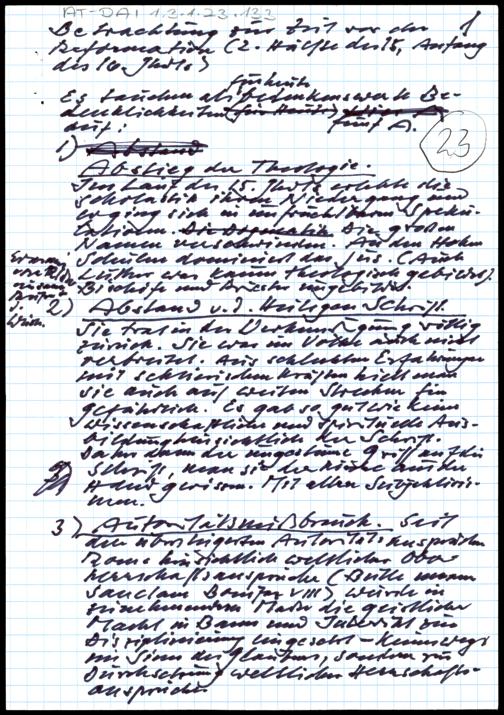 AT-DAI 1.3.1.23.133
1
Betrachtung zur Zeit vor der
Reformation (2. Hälfte des 15., Anfang
des 16. Jhdts)
für heute
Es tauchen als bedenkenswerte Be-
denklichkeiten (für Heute)
fünf A.
auf:
23
1) Abstand
Abstieg der Theologie.
Im Lauf des 15. Jhdts erlebte die
Scholastik ihren Niedergang und
erging sich in unfruchtbaren Speku-
lationen. Die Dogmatik Die großen
Namen verschwinden. An den Hohen
Schulen dominiert das Jus. (Auch
Luther war kaum theologisch gebildet).
Bischöfe und Priester ungebildet.
2) Abstand v. d. Heiligen Schrift.
Sie trat in der Verkündigung völlig
zurück. Sie war im Volke auch nicht
verbreitet. Aus schlechten Erfahrungen
mit sektiererischen Kräften hielt man
sie auch auf weiten Strecken für
gefährlich. Es gab so gut wie keine
wissenschaftliche und spirituelle Aus-
bildung hinsichtlich der Schrift.
Daher dann der ungestüme Griff auf die
Schrift, man sie der Kirche aus der
Hand gerissen. Mit allen Subjektivis-
men.
3) Autoritätsmißbrauch. Seit
den überzogenen Autoritätsansprüchen
Roms hinsichtlich weltlicher Ober-
herrschaftsansprüche (Bulle unam
sanctam Bonifaz VIII) wurde in
zunehmendem Maße die geistliche
Macht in Bann und Interdikt zur
Disziplinierung eingesetzt – keineswegs
im Sinn des Glaubens, sondern zur
Durchsetzung weltlicher Herrschafts-
ansprüche.